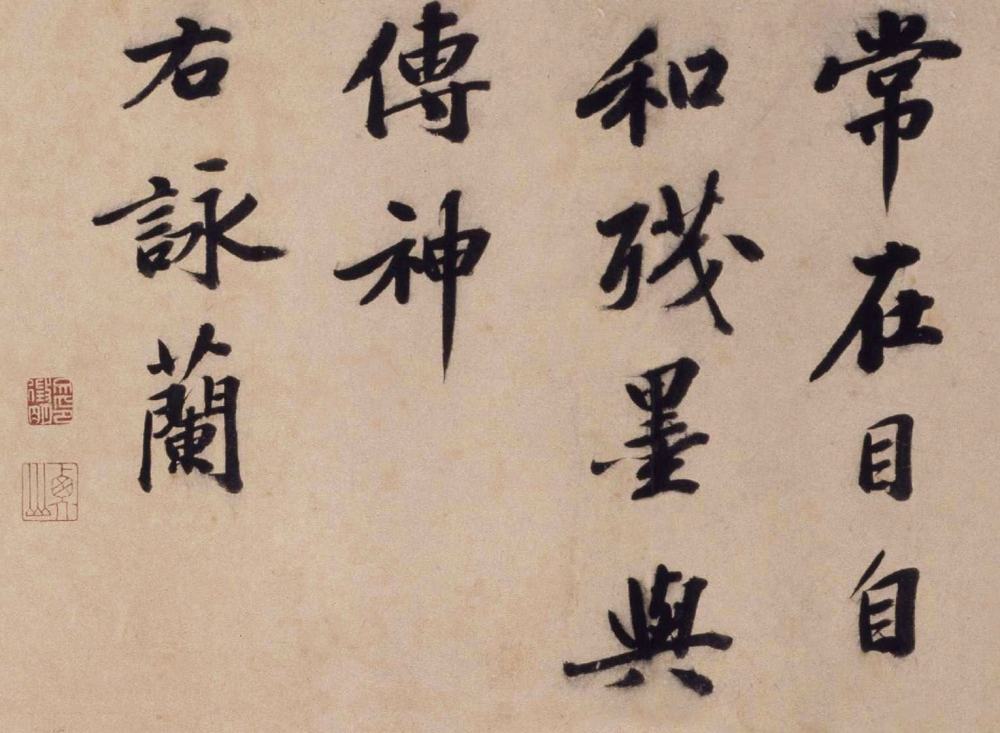 常在目自
和殘墨與
傳神
右詠蘭